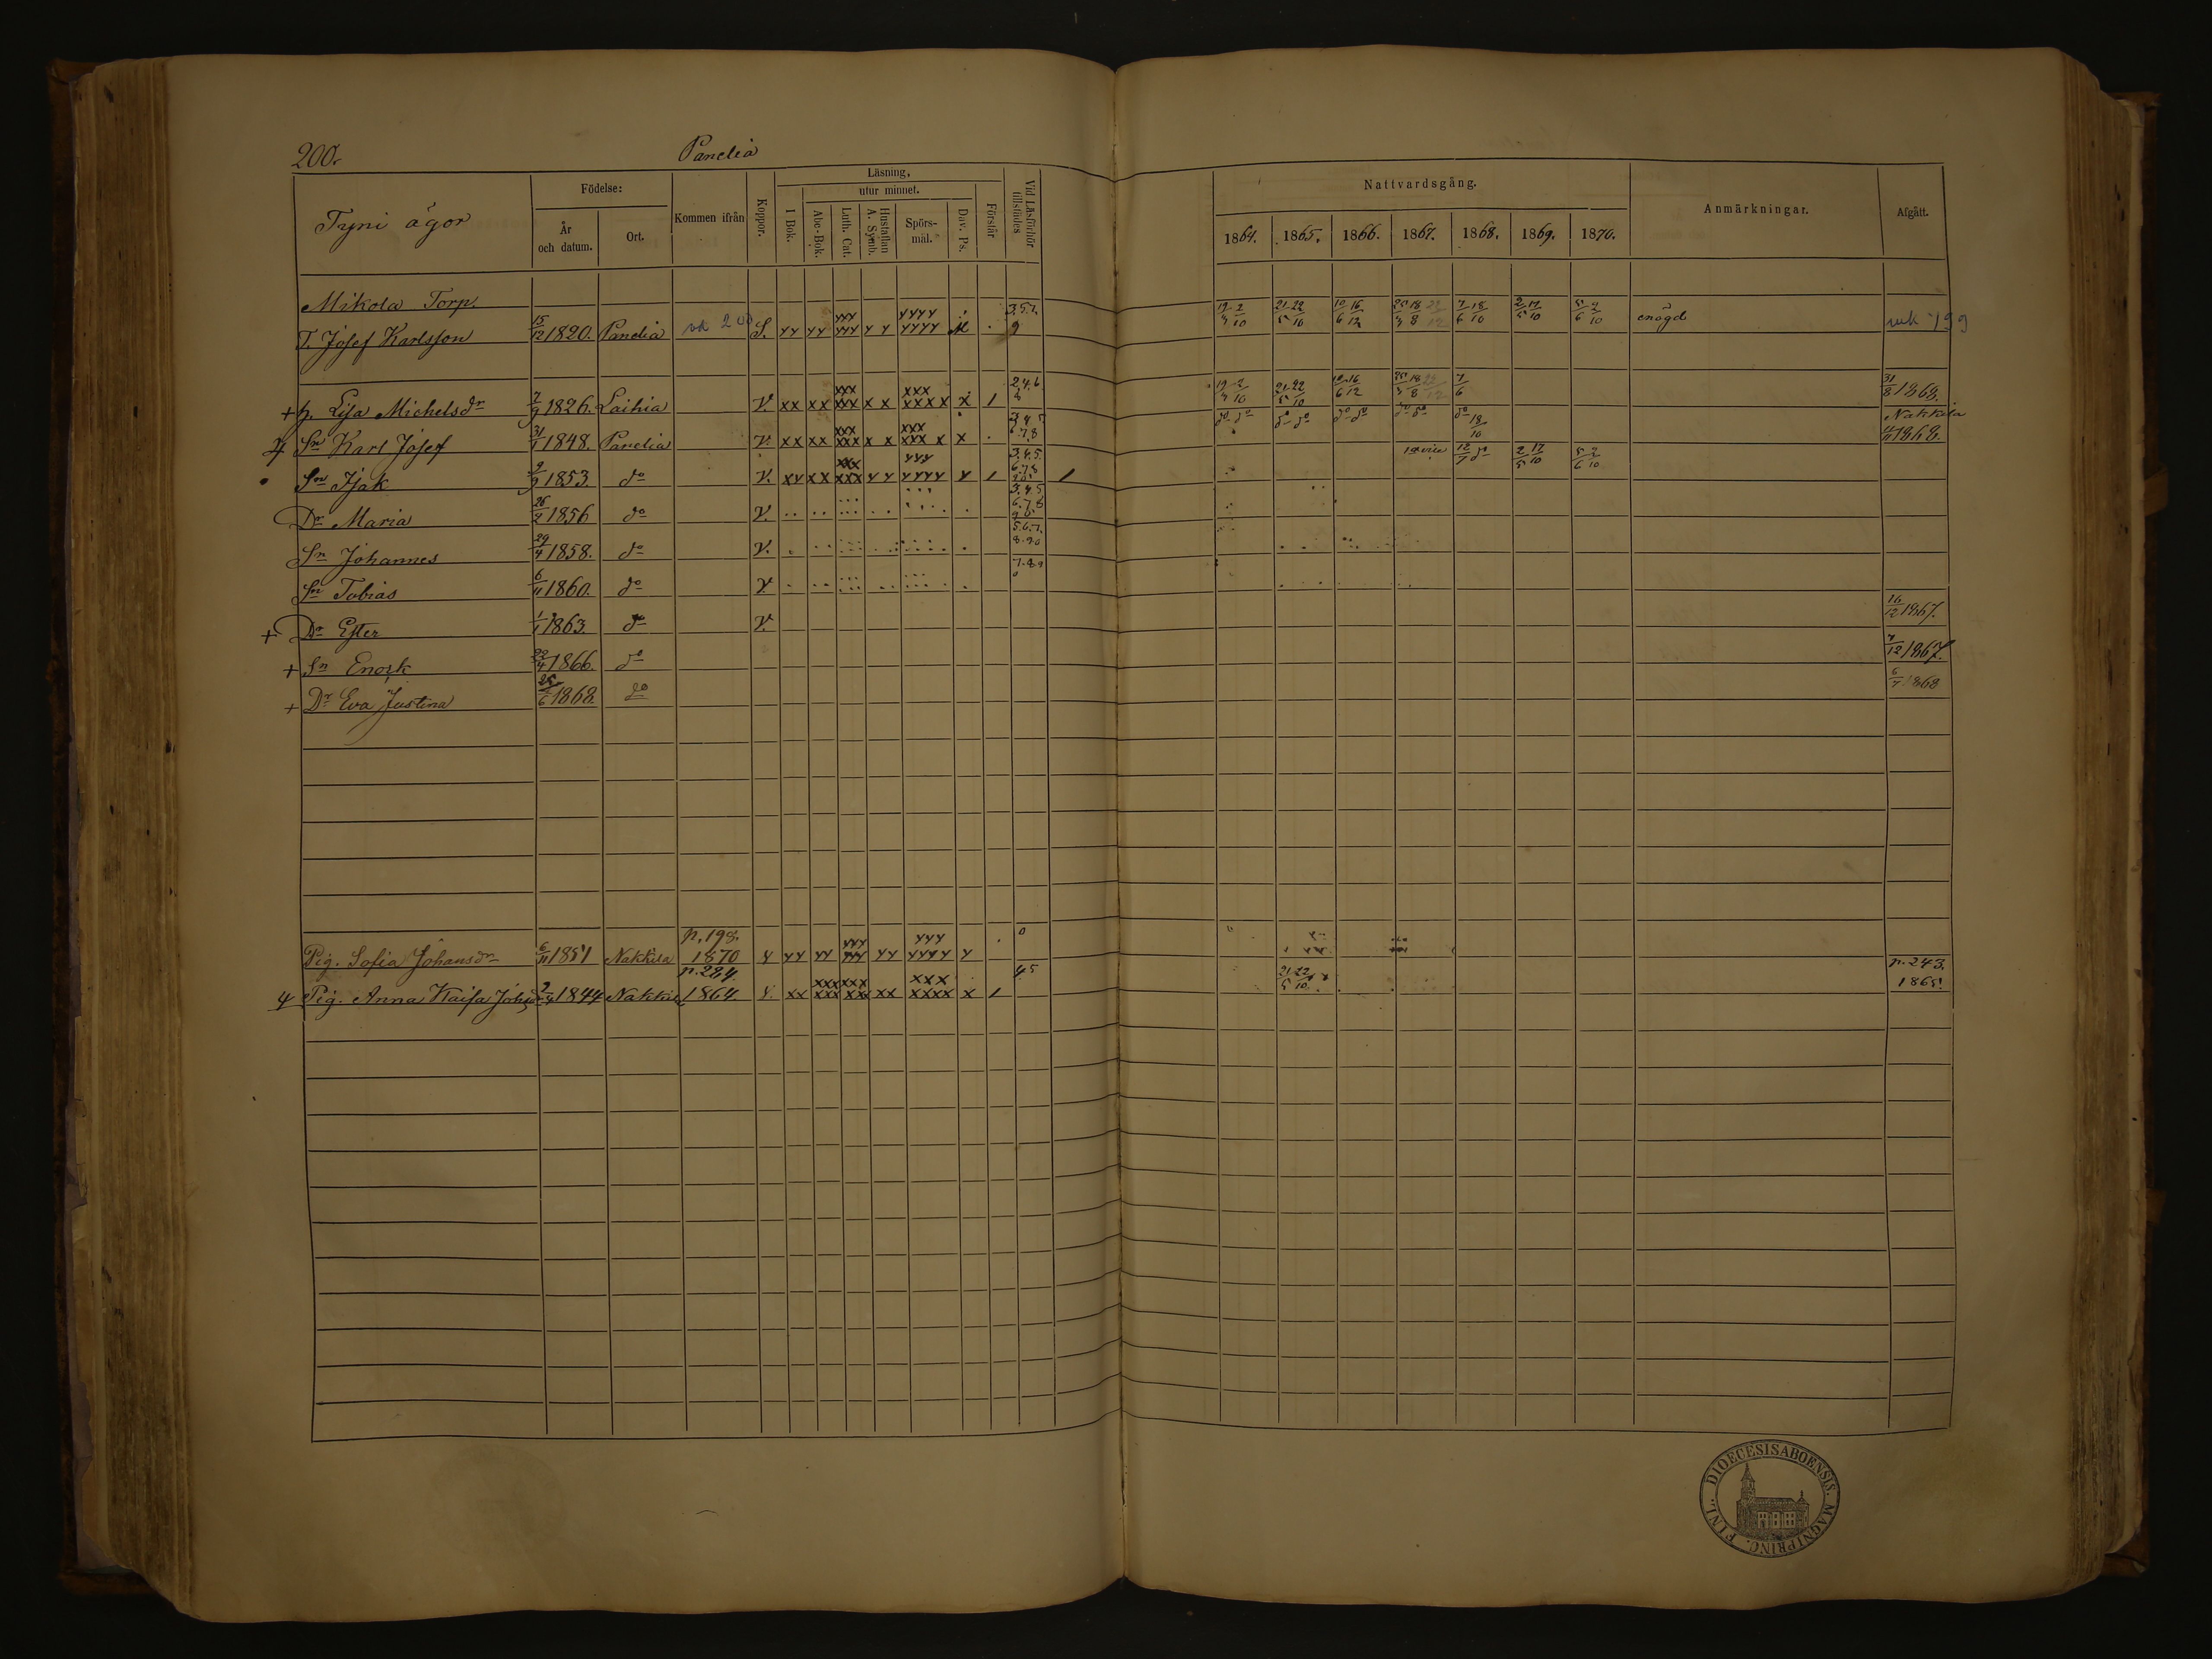 200.
Panelia
Tyni ägor
Födelse:
År och datum.
Ort.
Kommen ifrån
Koppor.
Läsning,
utur minnet.
I Bok.
Abc-Bok.
Luth. Cat.
Hustaflan A. Symb.
Spörs-mål.
Dav. Ps.
Förstår
Vid Läsförhör tillstädes
Nattvardsgång.
1864. 1865. 1866. 1867. 1868. 1869. 1870.
Anmärkningar.
Afgått.
Mikola Torp.
T. Josef Karlsson 15/12 1820. Panelia S. 3.5.7. 9 19/4 2/10 21/5 22/10 10/6 16/12 7/6 18/10 2/5 17/10 5/6 2/10 enögd
+ h. Lisa Michelsdr 7/9 1826. Laihia V. xx xx xxx xxx x x xxx xxxx x 1 2.4.6 19/4 2/10 21/5 22/10 10/6 16/12 7/6 31/8 1868.
Sn Karl Josef 31/1 1848. Panelia V. xx xx xxx xxx x x xxx xxx x x 3.4.5. 6.7.8 do do do do do do do do do 18/10 Nakkila 1868.
Sn Isak 2/9 1853 do V. 3.4.5. 6.7.8 12/7 do 2/5 17/10 5/6 2/10
Dr Maria 26/2 1856 do V. 3.4.5 6.7.8
Sn Johannes 29/4 1858. do V. 5.6.7. 8.9.0
Sn Tobias 6/11 1860. do V. 7.8.9
+ Dr Ester 1/1 1863. do V. 16/12 1867.
+ Sn Enock 22/4 1866. do 7/12 1867.
+ Dr Eva Justina 25/6 1868. do 6/7 1868
Pig. Sofia Johansdr 6/11 1851 Nakkila p. 198. 1870
Pig. Anna Kaisa 2/4 1844 Nakkila p. 284 1864. xx xxx xxx xxx xxx xx xxx xxxx x 1 45 21/5 22/10 p. 243. 1865.
FINL. DIOECESIS ABOENSIS. MAGNI PRINC.